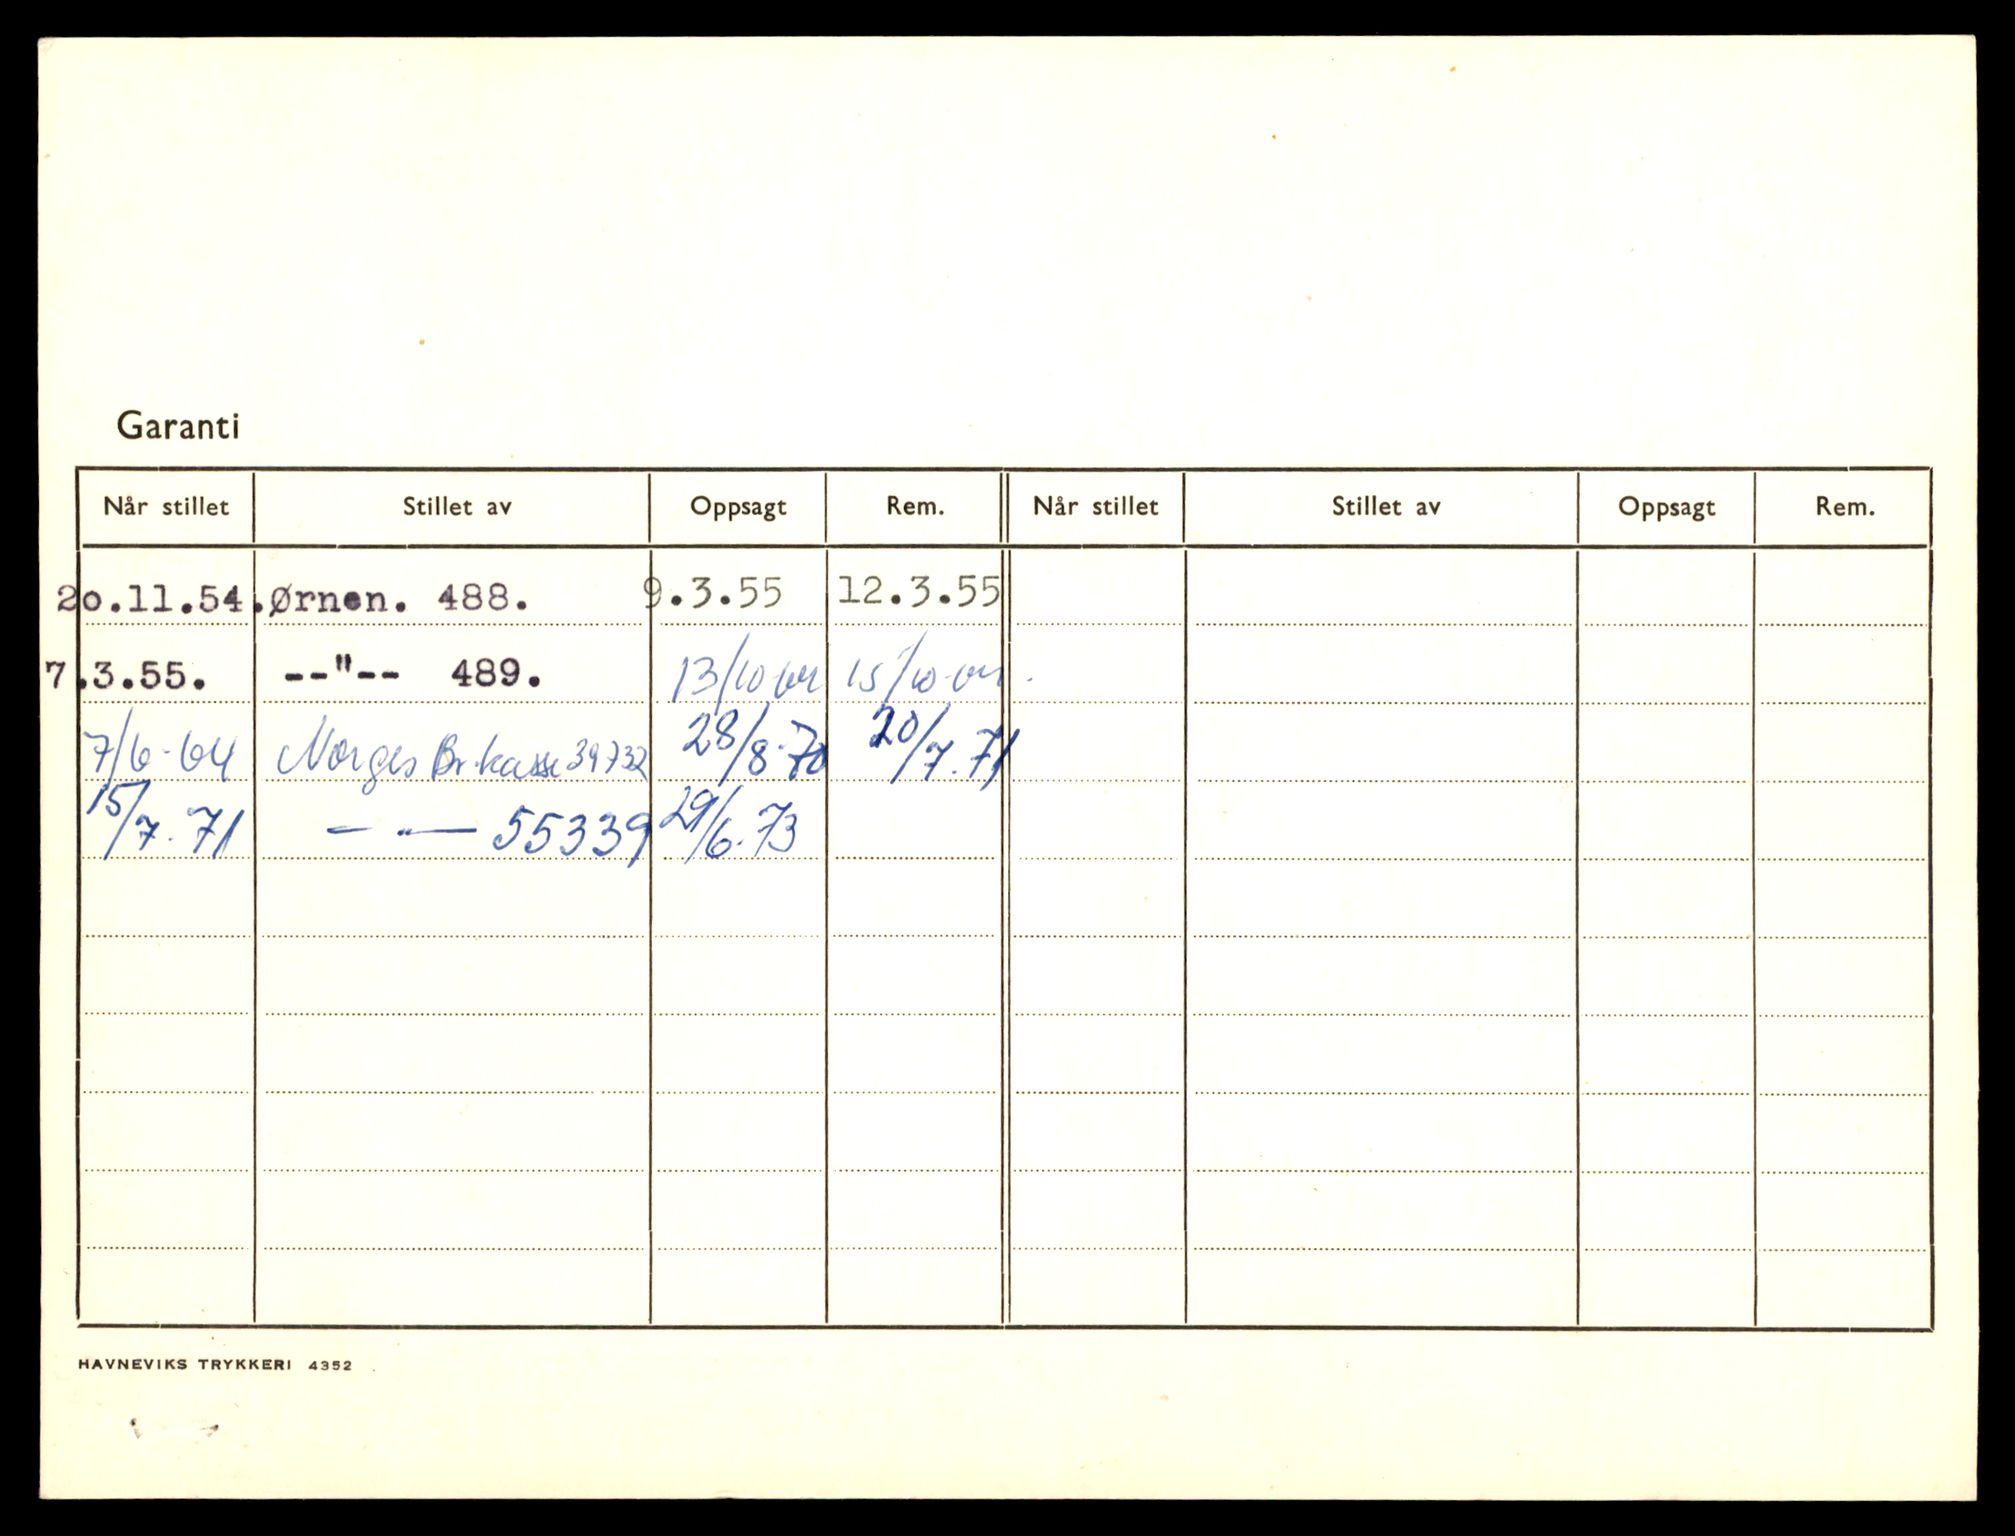 Garanti
Når stillet Stillet av Oppsagt Rem. Når stillet Stillet av Oppsagt Rem.
2o.11.54. Ørnen. 488. 9.3.55 12.3.55
7.3.55. --"-- 489. 13/10-64 15/10-64.
7/6-64 Norges Br.kasse 39732 28/8-70 20/7.71
15/7.71 — — 55339 29/6.73
HAVNEVIKS TRYKKERI 4352